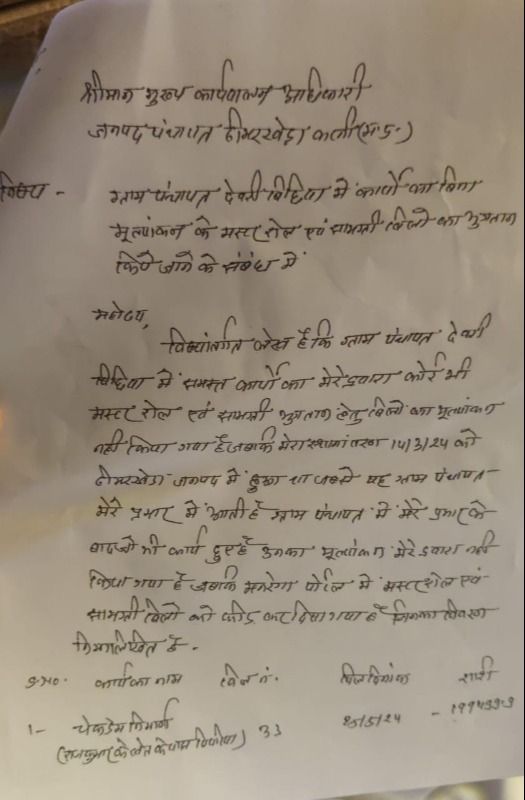 श्रीमान मुख्य कार्यपालन अधिकारी
जनपद पंचायत ढीमरखेड़ा कटनी (म.प्र.)
विषय - ग्राम पंचायत देवरी बिछिया में कार्यो का बिना
मूल्यांकन के मस्टर रोल एवं सामग्री बिलो का भुगतान
किये जाने के संबंध में
महोदय,
विषयांतर्गत लेख है कि ग्राम पंचायत देवरी
बिछिया में समस्त कार्यो का मेरे द्वारा कोई भी
मस्टर रोल एवं सामग्री भुगतान हेतु बिलो का मूल्यांकन
नही किया गया है जबकि मेरा स्थानांतरण 14/3/24 को
ढीमरखेड़ा जनपद में हुआ था जबसे यह ग्राम पंचायत
मेरे प्रभार में आती है ग्राम पंचायत में मेरे प्रभार के
बाद जो भी कार्य हुए है उनका मूल्यांकन मेरे द्वारा नही
किया गया है जबकि मनरेगा पोर्टल में मस्टर रोल एवं
सामग्री बिलो को फीड कर दिया गया है जिनका विवरण
निम्नलिखित है -
S.No. कार्य का नाम बिल नं. बिल दिनांक राशी
1- चेकडेम निर्माण 33 25/5/24 -
(राजकुमार के खेत के पास बिछिया)